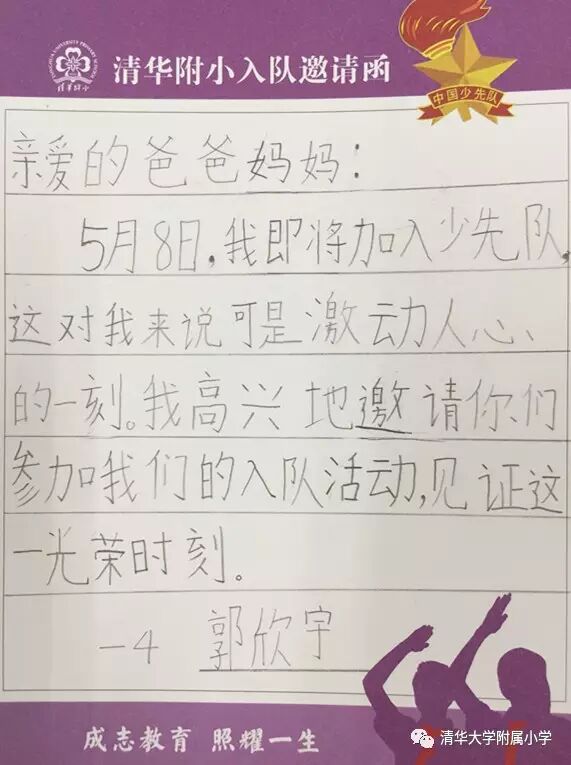 TSINGHUA UNIVERSITY PRIMARY SCHOOL
清华附小
清华附小入队邀请函
中国少先队
亲爱的爸爸妈妈：
5月8日，我即将加入少先队，
这对我来说可是激动人心、
的一刻。我高兴地邀请你们
参加我们的入队活动，见证这
一光荣时刻。
一4 郭欣宇
成志教育 照耀一生
清华大学附属小学